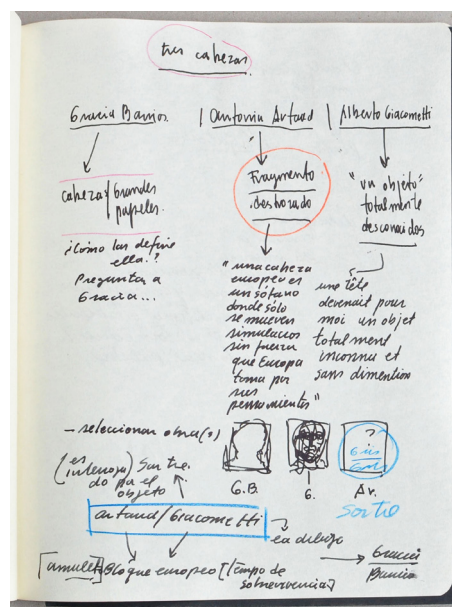 tres cabezas
Gracia Barrios | Antonin Artaud | Alberto Giacometti
cabezas/Grandes
papeles.
¿Como las define
ella.?
Preguntar a
Gracia...
Fragmento
desborado
"una cabeza
europea es
un sótano
donde sólo
se mueven
simulacros
sin fuerza
que Europa
toma por
sus
pensamientos"
"un objeto"
totalmente
desconocidos
une tête
devenait pour
moi un objet
totalment
inconnu et
sans dimention
- seleccionar obra(s)
?
G.B. G. Ar.
Sartre
(es
interroga) Sartre.
do por el
objeto
Artaud/Giacometti
la dibujo
Bloque europeo [tiempo de
sobrevivencia]
Gracia
Barrios